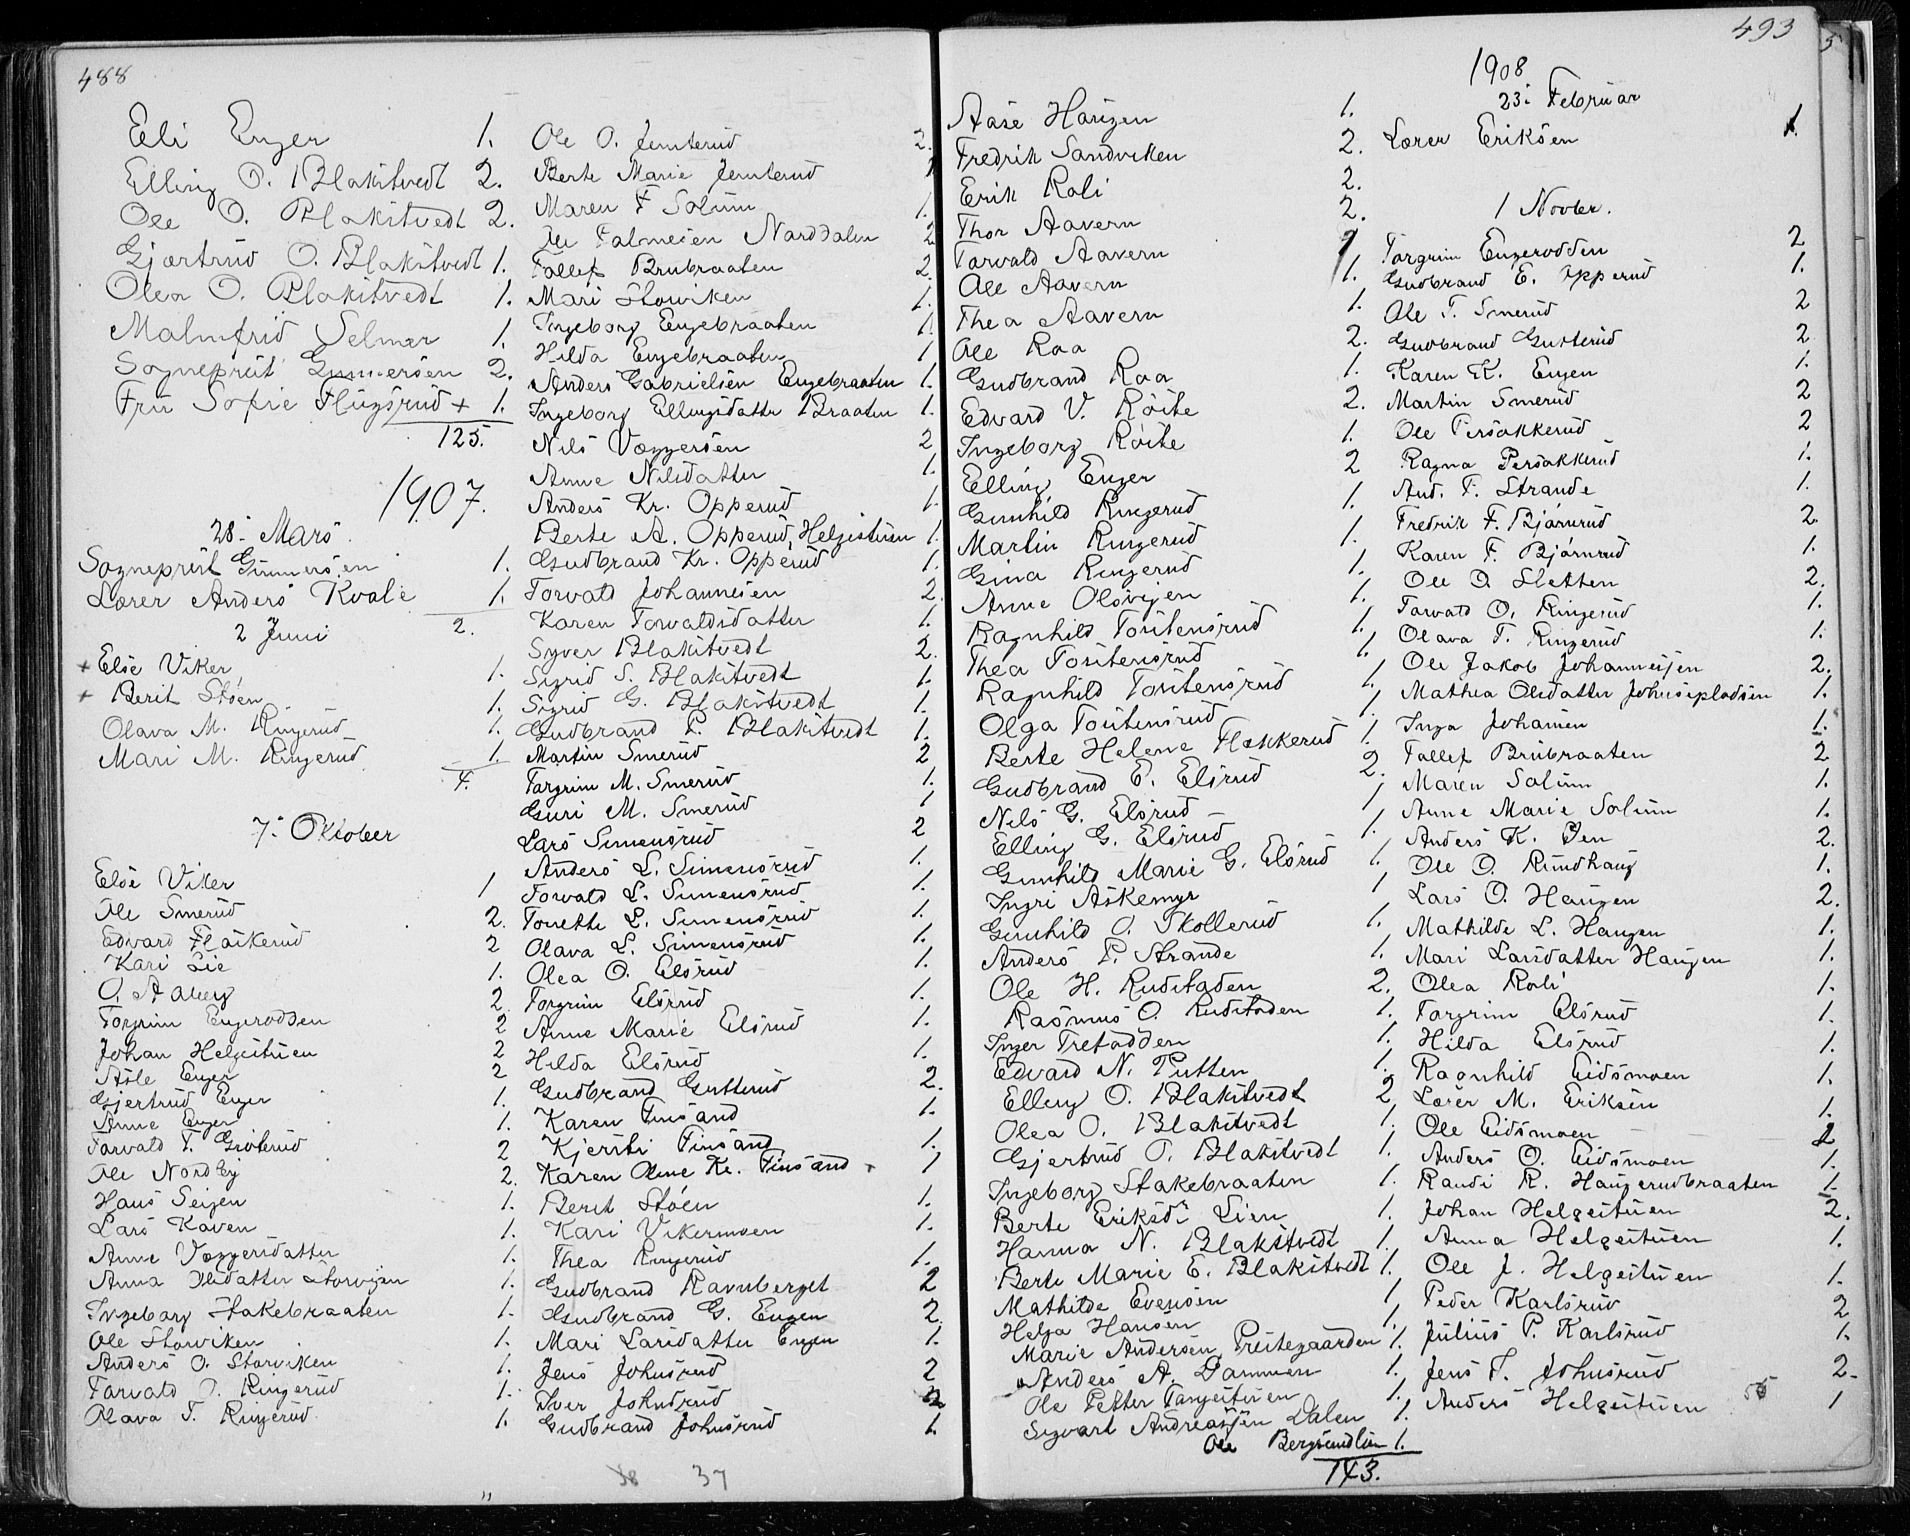 488
Eli Enger 1.
Elling O. Blakstvedt 2.
Ole O. Blakstvedt 2.
Gjærtrud O. Blakstvedt 1.
Olea O. Blakstvedt 1.
Malmfrid Selmer 1.
Sogneprest Gunnersen 2.
Fru Sofie Flugsrud + 1.
125.
1907.
28. Mars.
Sogneprest Gunnersen 1.
Lærer Anders Kvale 1.
2.
2 Juni
+ Else Viker 1.
+ Berit Støen 1.
Olava M. Ringerud 1.
Mari M. Ringerud 1.
4.
7. Oktober
Else Viker 1
Ole Smerud 2.
Edvard Flaskerud 2
Kari Lie 1.
O. Aaberg 2.
Torgrim Engerodden 2
Johan Helgestuen 2
Asle Enger 2
Gjertrud Enger 1.
Anne Enger 1.
Torvald T. Grøterud 2
Ole Nordby 2.
Hans Seigen 1.
Lars Kaven 1.
Anne Væggersdatter 1.
Anna Olsdatter 1.
Ingeborg Stakebraaten 1.
Ole Storviken 1.
Anders O. Storviken 1.
Torvald O. Ringerud 1.
Olava T. Ringerud 1.
Ole O. Jemterud 2.
Berte Marie Jemterud
Maren F Solum 1.
Ole Palmesen Norddalen 2
Tollef Brubraaten 2.
Mari Storviken 1.
Ingeborg Engebraaten 1.
Hilda Engebraaten 1
Anders Gabrielsen Engebraaten 1.
Ingeborg Ellingsdatter Braaten 1.
Nils Væggersen 2
Anne Nilsdatter 1.
Anders Kr. Opperud 1.
Berte A. Opperud, Helgestuen 1.
Gudbrand Kr. Opperud 1.
Torvald Johannesen 2.
Karen Torvaldsdatter 1.
Syver Blakstvedt 2.
Sigrid S. Blakstvedt 1.
Sigrid G. Blakstvedt 1.
Gudbrand P. Blakstvedt 1.
Martin Smerud 2
Torgrim M. Smerud 1.
Guri M. Smerud 1
Lars Simensrud 2
Anders L. Simensrud 1.
Torvald L. Simensrud 1.
Tonette L. Simensrud 1.
Olava L. Simensrud 1.
Olea O. Elsrud 1.
Torgrim Elsrud 1.
Anne Marie Elsrud 1.
Hilda Elsrud 1.
Gudbrand Gutterud 2.
Karen Finsand 1.
Kjersti Finsand 1.
Karen Oline Kr. Finsand 1
Berit Støen 1.
Kari Vikermoen 1.
Thea Ringerud 1.
Gudbrand Ravnberget 2
Gudbrand G. Engen 2.
Mari Larsdatter Engen 1.
Jens Johnsrud 2
Iver Johnsrud 2
Gudbrand Johnsrud 1.
38 37
493
Aase Haugen 1.
Fredrik Sandviken 2.
Erik Roli 2.
Thor Aavern 2.
Torvald Aavern 1
Ole Aavern 1.
Thea Aavern 1.
Ole Roa 2.
Gudbrand Roa 1.
Edvard V. Røite 2.
Ingeborg Røite 1.
Elling Enger 2
Gunhild Ringerud 1.
Martin Ringerud 1.
Gina Ringerud 1.
Anne Olsvejen 1.
Ragnhild Tostensrud 1.
Thea Tostensrud 1.
Ragnhild Tostensrud 1
Olga Tostensrud 1
Berte Helene Flaskerud 1.
Gudbrand E. Elsrud 2.
Nils G. Elsrud 1
Elling G. Elsrud 1.
Gunhild Marie G. Elsrud 1.
Ingri Askemyr 1
Gunhild O. Skollerud 1.
Anders P. Strande 1.
Ole H. Rudstaden 2.
Rasmus O. Rudstaden 1.
Inger Trefodden 1.
Edvard N. Putten 1.
Elling O. Blakstvedt 2
Olea O. Blakstvedt 1.
Gjertrud O. Blakstvedt 1.
Ingeborg Stakebraaten 1.
Berte Eriksd: Lien 1.
Hanna N. Blakstvedt 1.
Berte Marie E. Blakstvedt 1.
Mathilde Evensen 1
Helga Hansen 1.
Marie Andersen, Prestegaarden 1.
Anders A. Dammen 1.
Ole Petter Torgerstuen 1.
Sigvart Andreassen Dalen 1.
Ole Bergsundlien 1.
143.
1908
23. Februar
Lærer Eriksen 1.
1 Novber.
Torgrim Engerodden 2
Gudbrand E. Opperud 1.
Ole T. Smerud 2
Gudbrand Gutterud 2
Karen K. Engen 1.
Martin Smerud 2
Ole Persokkerud 2
Ragna Persokkerud 1.
And. F. Strande 1.
Fredrik F. Bjørnrud 2.
Karen F. Bjørnrud 1.
Ole O. Sletten 2.
Torvald O. Ringerud 1.
Olava T. Ringerud 1.
Ole Jakob Johannesjen 2.
Mathea Olsdatter Johnspladsen 1.
Inga Johansen 1.
Tollef Brubraaten 2
Maren Solum 1.
Anne Marie Solum 1.
Anders K. Jen 2.
Ole O. Rundhaug 1.
Lars O. Haugen 2.
Mathilde L. Haugen 1.
Mari Larsdatter Haugen 1.
Olea Roli 1.
Torgrim Elsrud 1.
Hilda Elsrud 1.
Ragnhild Eidsmoen 1.
Lærer M. Eriksen 1.
Ole Eidsmoen 2
Anders O. Eidsmoen 1.
Randi R. Haugerudbraaten 1.
Johan Helgestuen 2.
Anna Helgestuen 1.
Ole J. Helgestuen 1.
Peder Karlsrud 2
Julius P. Karlsrud 1.
Jens T. Johnsrud 2.
Anders Helgestuen 1